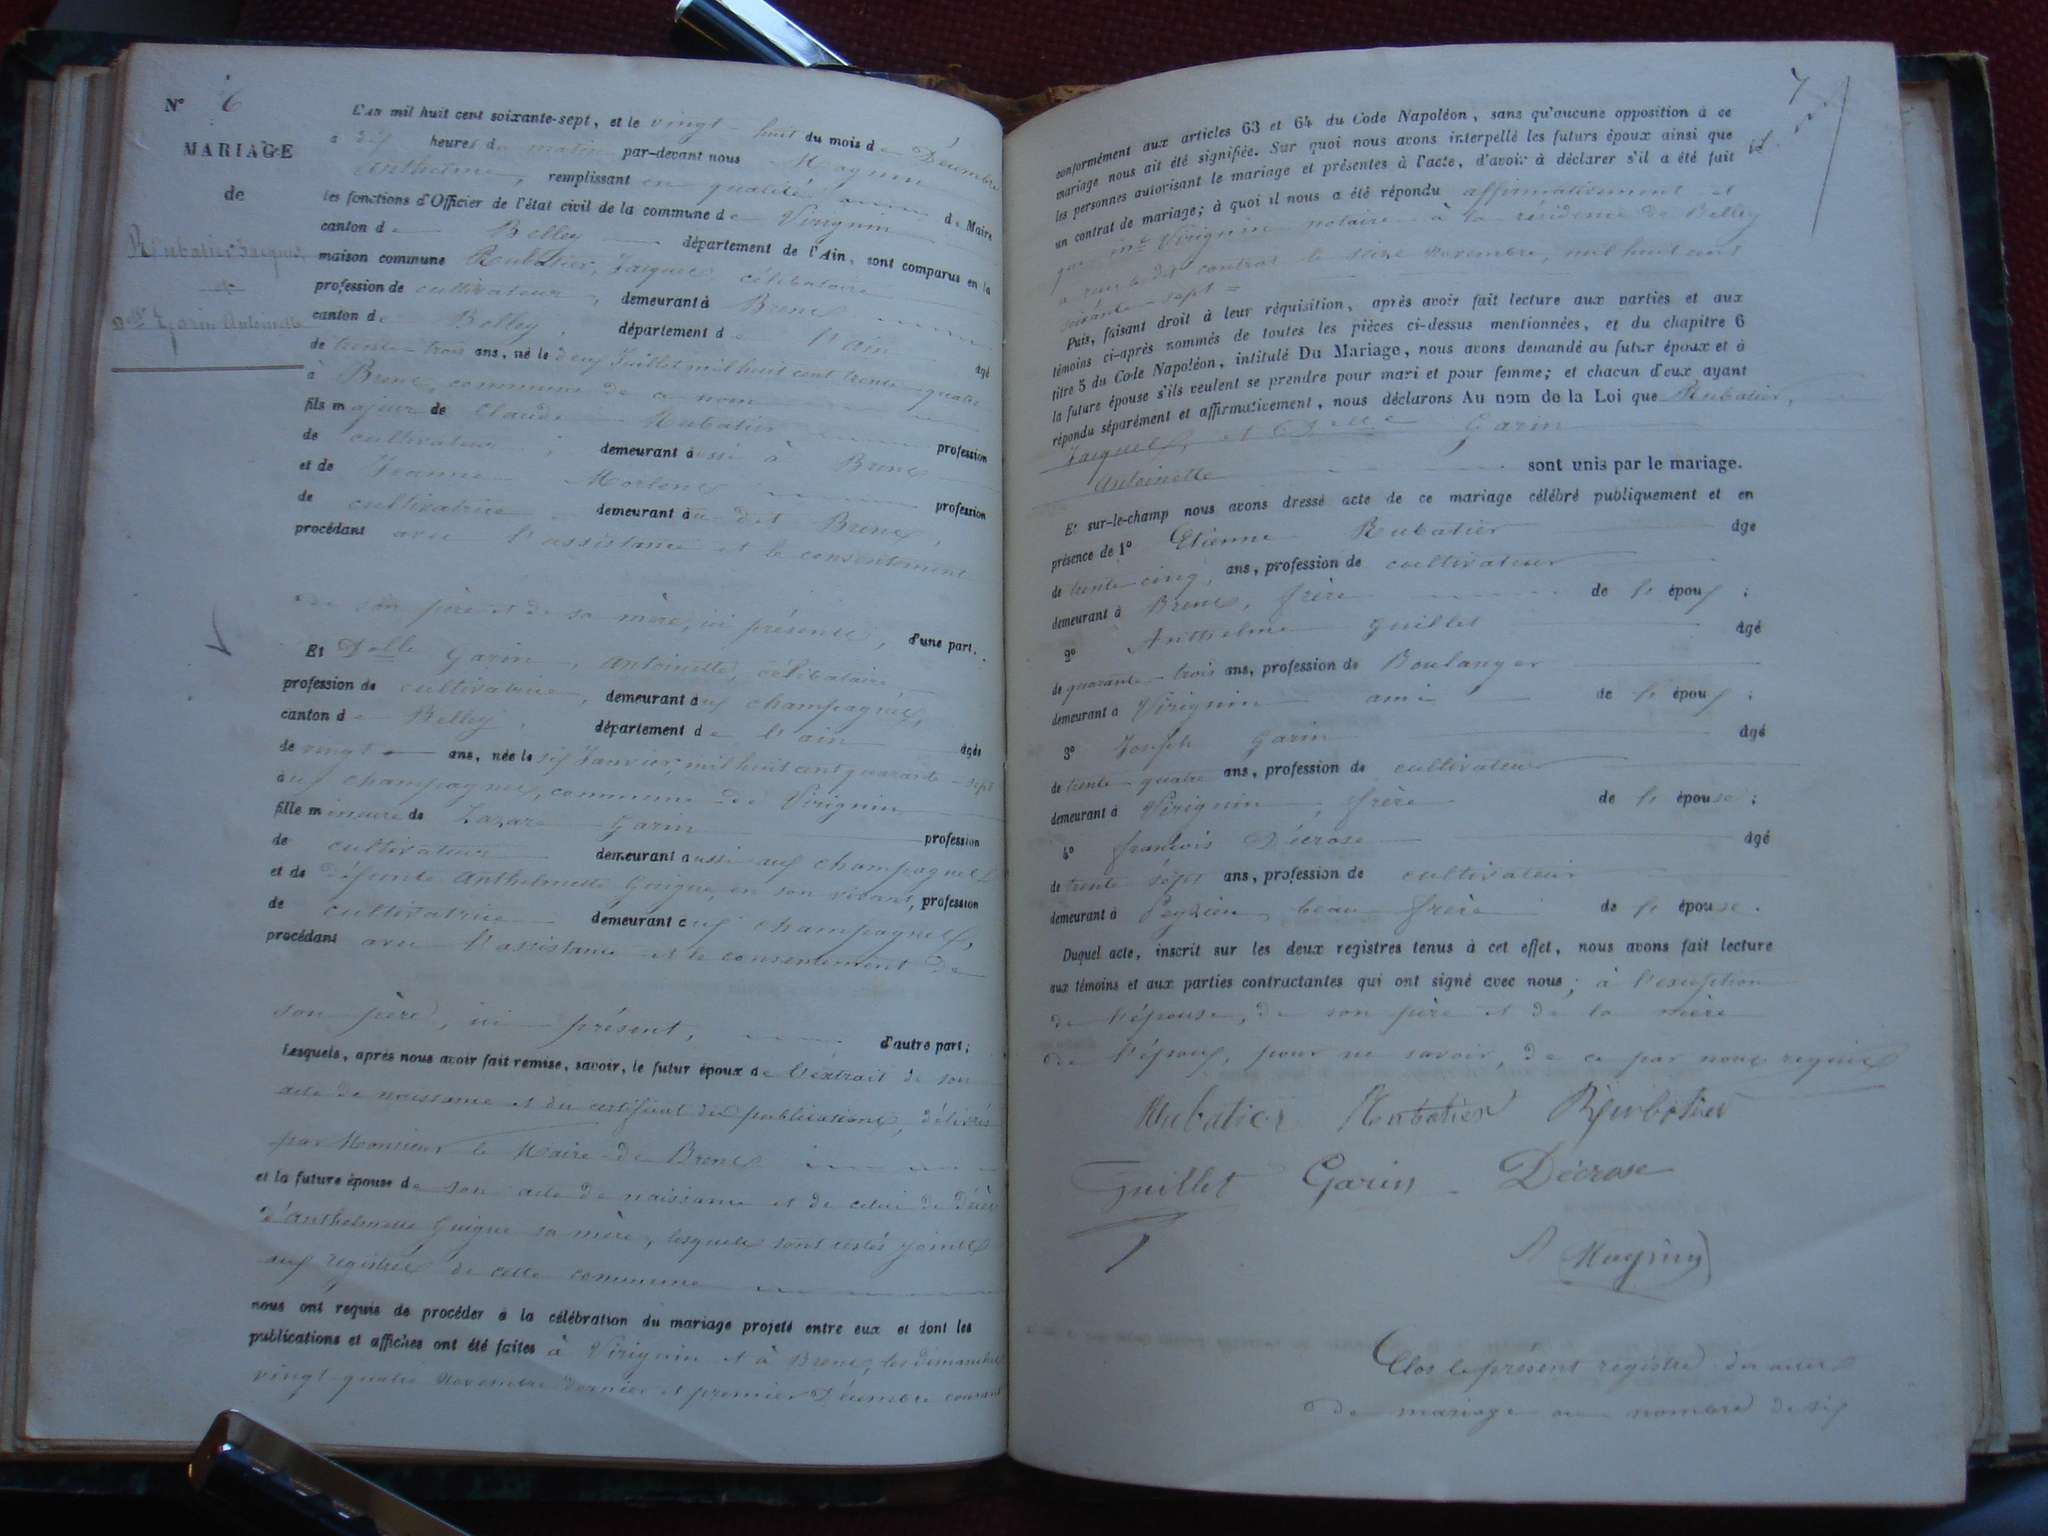 N° 6
MARIAGE
de
Rubatier Jacques
et
Delle Garin Antoinette
L'an mil huit cent soixante-sept, et le vingt-huit du mois de Décembre
à dix heures du matin par-devant nous Magnin
Anthelme, remplissant en qualité de Maire
les fonctions d'Officier de l'état civil de la commune de Virignin
canton de Belley département de l'Ain, sont comparus en la
maison commune Rubatier, Jacques célibataire
profession de cultivateur, demeurant à Brens
canton de Belley, département de l'ain âgé
de trente-trois ans, né le deux Juillet mil huit cent trente-quatre
à Brens, commune de ce nom
fils majeur de Claude Rubatier profession
de cultivateur, demeurant aussi à Brens
et de Jeanne profession
de cultivatrice demeurant au dit Brens,
procédant avec l'assistance et le consentement
de son père et de sa mère, ici présents, d'une part.
Et Delle Garin, Antoinette, célibataire,
profession de cultivatrice, demeurant aux champagnes,
canton de Belley, département de l'ain âgée
de vingt ans, née le six Janvier, mil huit cent quarante-sept
aux champagnes, commune de Virignin
fille mineure de Lazare Garin profession
de cultivateur demeurant aussi aux champagnes
et de défunte Anthelmette Guigue, en son vivant, profession
de cultivatrice demeurant aux champagnes,
procédant avec l'assistance et le consentement de
son père, ici présent, d'autre part;
Lesquels, après nous avoir fait remise, savoir, le futur époux de l'extrait de son
acte de naissance et du certificat des publications, délivrés
par Monsieur le Maire de Brens
et la future épouse de son acte de naissance et de celui de décès
d'Anthelmette Guigue sa mère, lesquels sont restés joints
aux registres de cette commune
nous ont requis de procéder à la célébration du mariage projeté entre eux et dont les
publications et affiches ont été faites à Virignin et à Brens, les dimanches
vingt-quatre Novembre dernier et premier Décembre courant
7
conformément aux articles 63 et 64 du Code Napoléon, sans qu'aucune opposition à ce
mariage nous ait été signifiée. Sur quoi nous avons interpellé les futurs époux ainsi que
les personnes autorisant le mariage et présentes à l'acte, d'avoir à déclarer s'il a été fait
un contrat de mariage; à quoi il nous a été répondu affirmativement et
que Mtre Virignin notaire à la résidence de Belley
a reçu le dit contrat le seize novembre, mil huit cent
soixante-sept =
Puis, faisant droit à leur réquisition, après avoir fait lecture aux parties et aux
témoins ci-après nommés de toutes les pièces ci-dessus mentionnées, et du chapitre 6
titre 5 du Code Napoléon, intitulé Du Mariage, nous avons demandé au futur époux et à
la future épouse s'ils veulent se prendre pour mari et pour femme; et chacun d'eux ayant
répondu séparément et affirmativement, nous déclarons Au nom de la Loi que Rubatier,
Jacques, et Delle Garin
Antoinette sont unis par le mariage.
Et sur-le-champ nous avons dressé acte de ce mariage célébré publiquement et en
présence de 1° Etienne Rubatier âgé
de trente cinq ans, profession de cultivateur
demeurant à Brens, frère de l'époux;
2° Anthelme Guillet âgé
de quarante-trois ans, profession de Boulanger
demeurant à Virignin ami de l'époux;
3° Joseph Garin âgé
de trente-quatre ans, profession de cultivateur
demeurant à Virignin, frère de l'épouse;
4° françois Décrose âgé
de trente sept ans, profession de cultivateur
demeurant à Peyzieu beau frère de l'épouse.
Duquel acte, inscrit sur les deux registres tenus à cet effet, nous avons fait lecture
aux témoins et aux parties contractantes qui ont signé avec nous, à l'exception
de l'épouse, de son père et de la mère
de l'époux, pour ne savoir, de ce par nous requis
Rubatier Rubatier Rubatier
Guillet Garin Décrose
A Magnin
Clos le présent registre des actes
de mariage au nombre de six